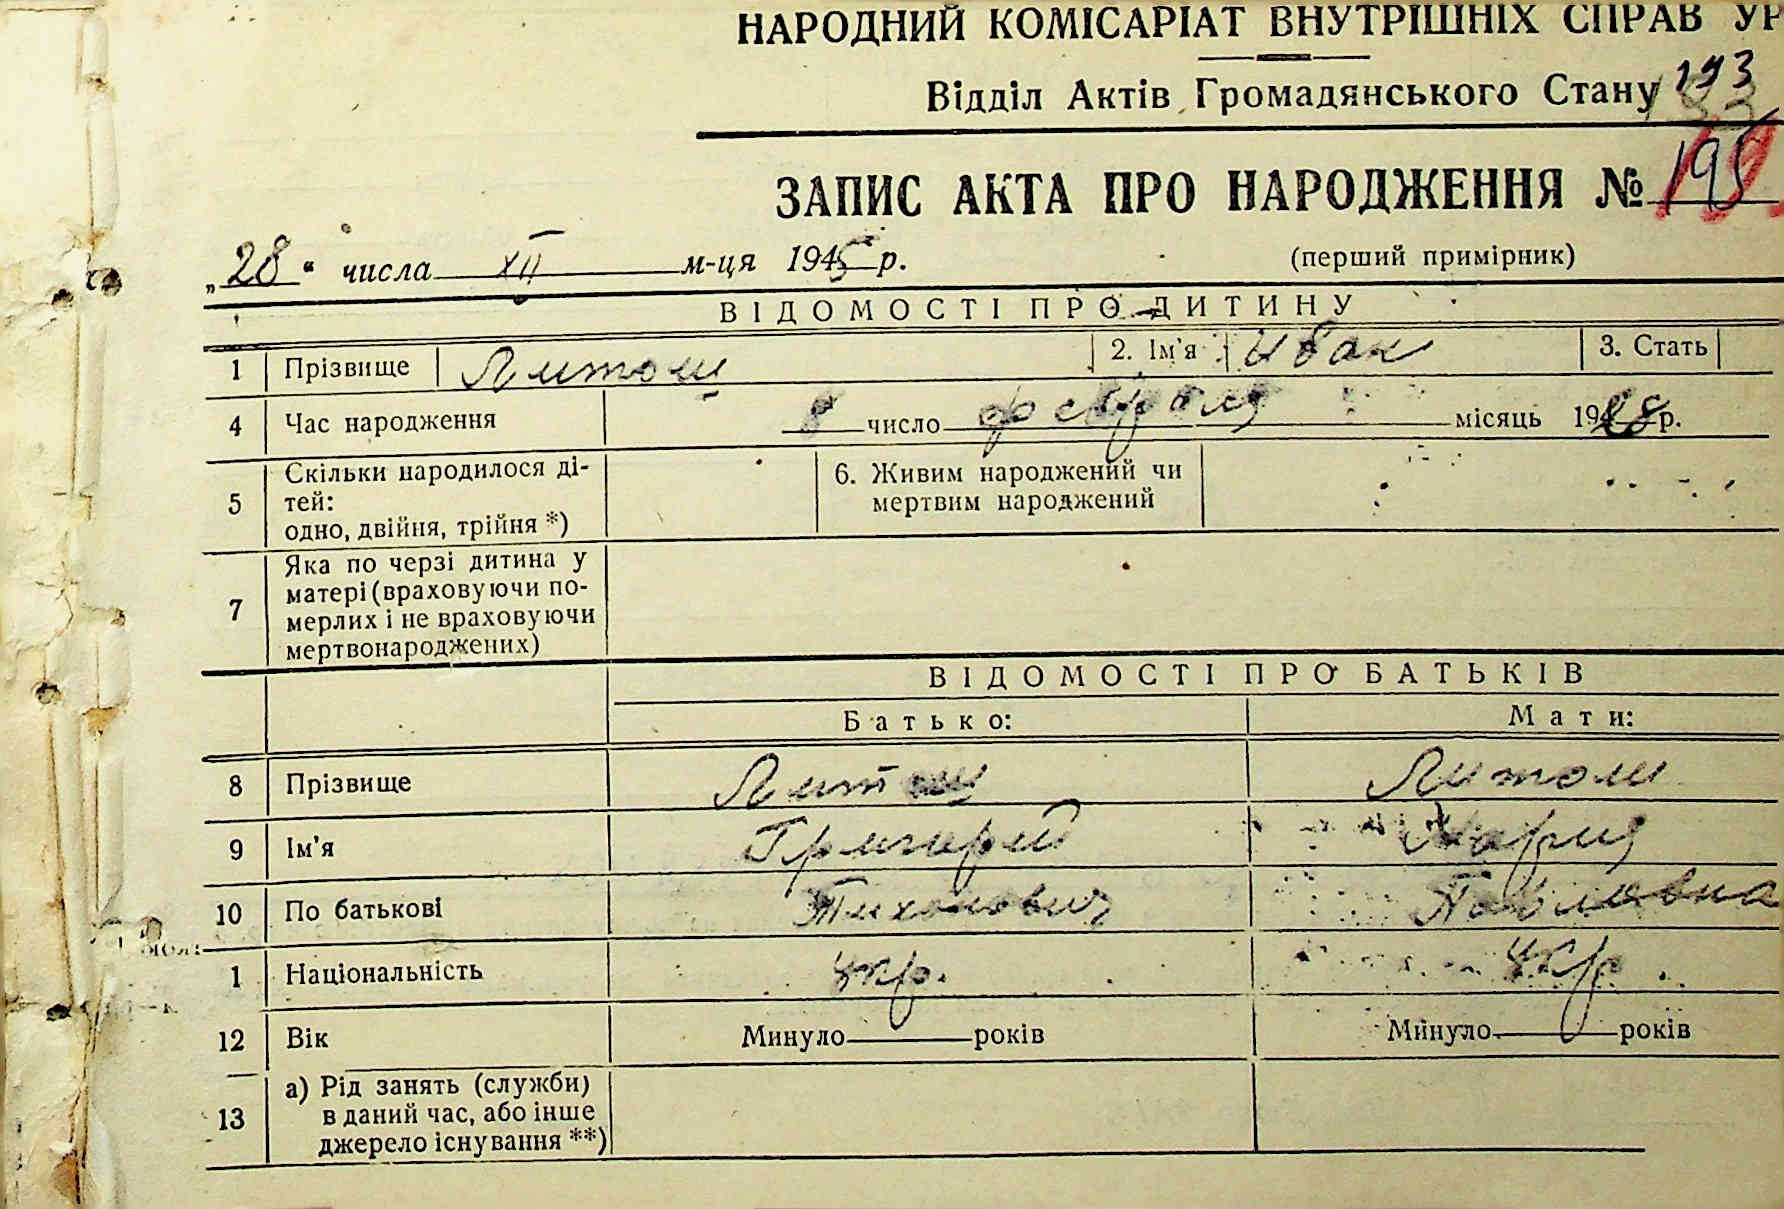 НАРОДНИЙ КОМІСАРІАТ ВНУТРІШНІХ СПРАВ УР
Відділ Актів Громадянського Стану
193
ЗАПИС АКТА ПРО НАРОДЖЕННЯ № 195
„28“ числа XII м-ця 1945 р. (перший примірник)
ВІДОМОСТІ ПРО ДИТИНУ
1 Прізвище Литош 2. Ім'я Иван 3. Стать
4 Час народження 8 число февраля місяць 1928 р.
5 Скільки народилося ді-
тей:
одно, двійня, трійня *)
6. Живим народжений чи
мертвим народжений
7 Яка по черзі дитина у
матері (враховуючи по-
мерлих і не враховуючи
мертвонароджених)
ВІДОМОСТІ ПРО БАТЬКІВ
Батько: Мати:
8 Прізвище Литош Литош
9 Ім'я Григорий Мария
10 По батькові Тихонович Павловна
1 Національність укр. укр.
12 Вік Минуло років Минуло років
13 а) Рід занять (служби)
в даний час, або інше
джерело існування **)